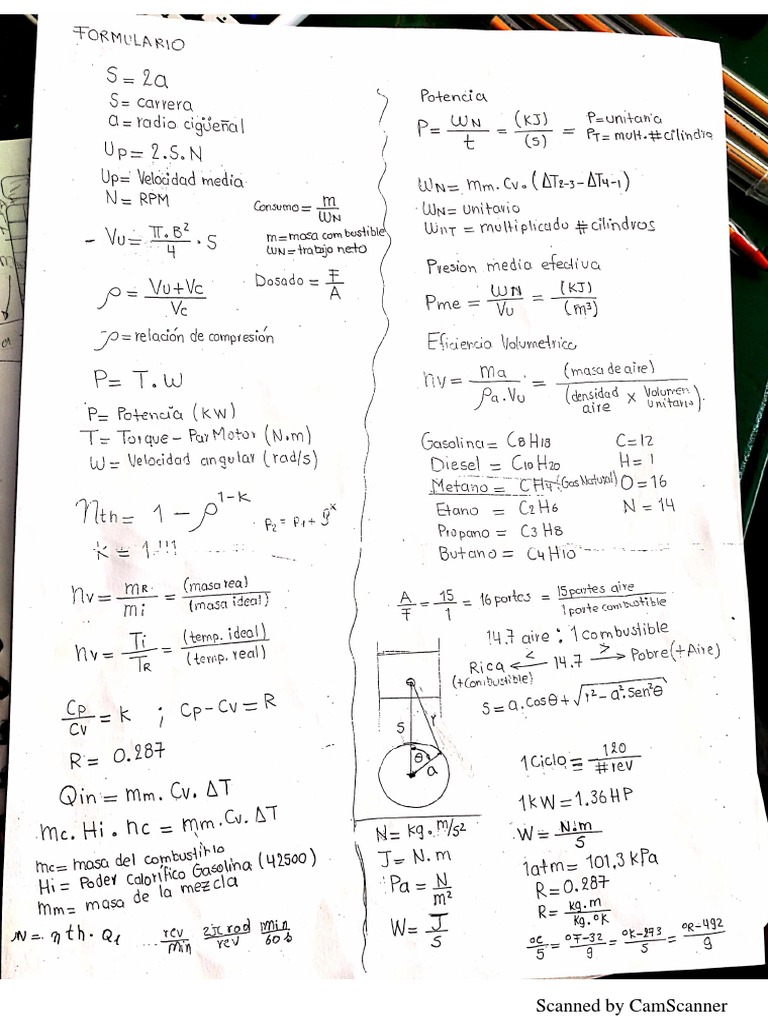 FORMULARIO
S = 2a
S = carrera
a = radio cigüeñal
Up = 2.S.N
Up = Velocidad media
N = RPM
Consumo = m/WN
m = masa combustible
WN = trabajo neto
- Vu = π.B²/4 . S
ρ = Vu+Vc/Vc
Dosado = F/A
ρ = relación de compresión
P = T.W
P = Potencia (KW)
T = Torque - Par Motor (N.m)
W = Velocidad angular (rad/s)
nth = 1 - ρ^1-k
k = 1.!!!
nv = mR/mi = (masa real)/(masa ideal)
nv = Ti/TR = (temp. ideal)/(temp. real)
Cp/Cv = k ; Cp-Cv = R
R = 0.287
Qin = mm. Cv. ΔT
mc. Hi . nc = mm. Cv. ΔT
mc = masa del combustible
Hi = Poder Calorífico Gasolina (42500)
mm = masa de la mezcla
N = ηth. Q1
rev/min 2π rad/rev min/60 s
Potencia
P = WN/t = (KJ)/(s) = P = unitaria
PT = mult. # cilindro
WN = mm. Cv. (ΔT2-3 - ΔT4-1)
WN = unitario
WNT = multiplicado # cilindros
Presion media efectiva
Pme = WN/Vu = (KJ)/(m³)
Eficiencia Volumetrica
nv = ma/ρa.Vu = (masa de aire)/(densidad aire x Volumen unitario)
Gasolina = C8H18 C = 12
Diesel = C10H20 H = 1
Metano = CH4 (Gas Natural) O = 16
Etano = C2H6 N = 14
Propano = C3H8
Butano = C4H10
A/F = 15/1 = 16 partes = 15 partes aire/1 parte combustible
14.7 aire : 1 combustible
Rica <— < 14.7 > —> Pobre (+Aire)
(+Combustible)
S = a. Cosθ + √r² - a². Sen²θ
S
r
θ
a
1 Ciclo = 120/# rev
1 KW = 1.36 HP
N = kg. m/s²
J = N. m
Pa = N/m²
W = J/s
W = N.m/s
1 atm = 101,3 kPa
R = 0.287
R = kg.m/kg.°k
°C/5 = °F-32/9 = °K-273/5 = °R-492/9
Scanned by CamScanner